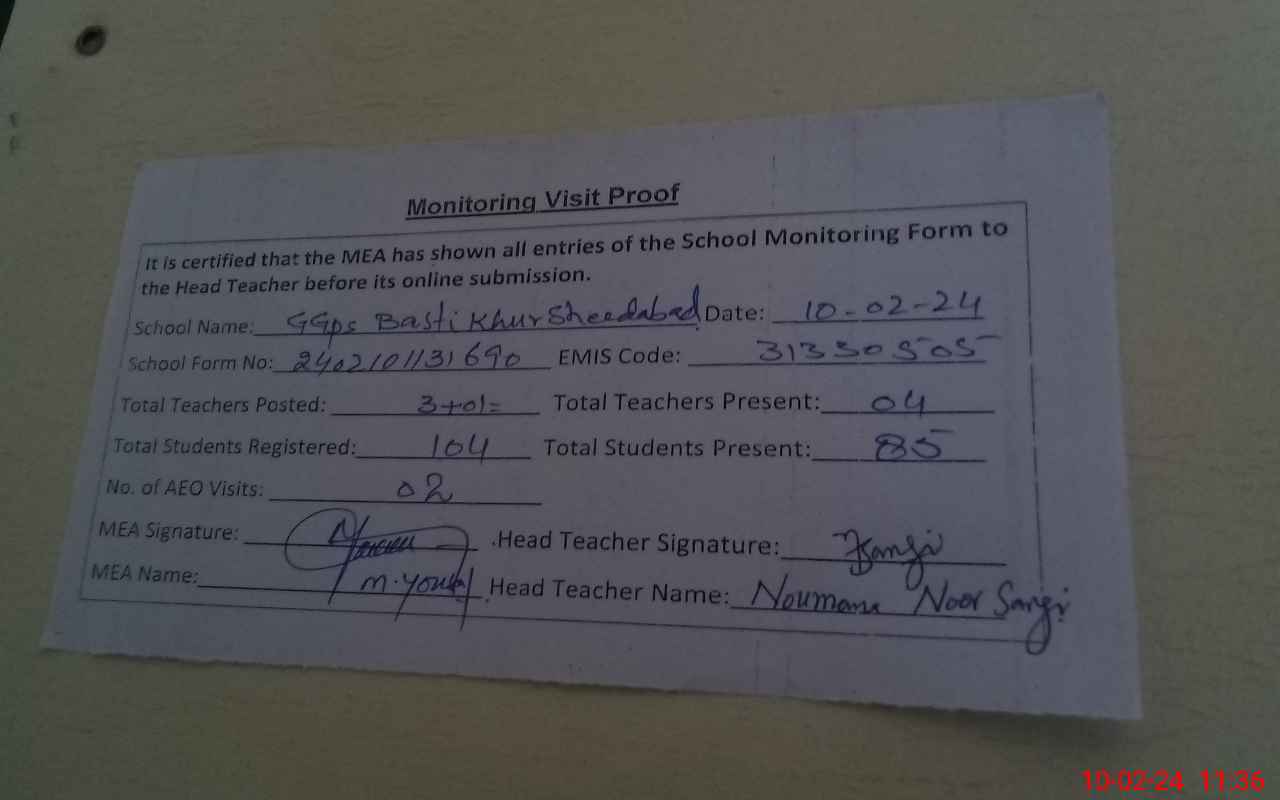 Monitoring Visit Proof
It is certified that the MEA has shown all entries of the School Monitoring Form to
the Head Teacher before its online submission.
School Name: GGps Basti Khursheedabad Date: 10-02-24
School Form No: 2402101131690 EMIS Code: 31330505
Total Teachers Posted: 3+01= Total Teachers Present: 04
Total Students Registered: 104 Total Students Present: 85
No. of AEO Visits: 02
MEA Signature: Head Teacher Signature:
MEA Name: M. Yousaf Head Teacher Name: Noumana Noor Sangi
10-02-24 11:36